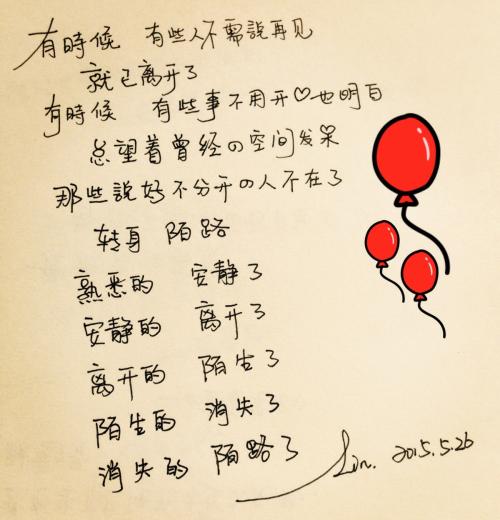 有時候 有些人不需説再见
就已离开了
有時候 有些事不用开♡也明白
总望着曾经の空间发呆
那些説好不分开の人不在了
转身 陌路
熟悉的 安静了
安静的 离开了
离开的 陌生了
陌生的 消失了
消失的 陌路了
Lin. 2015.5.26